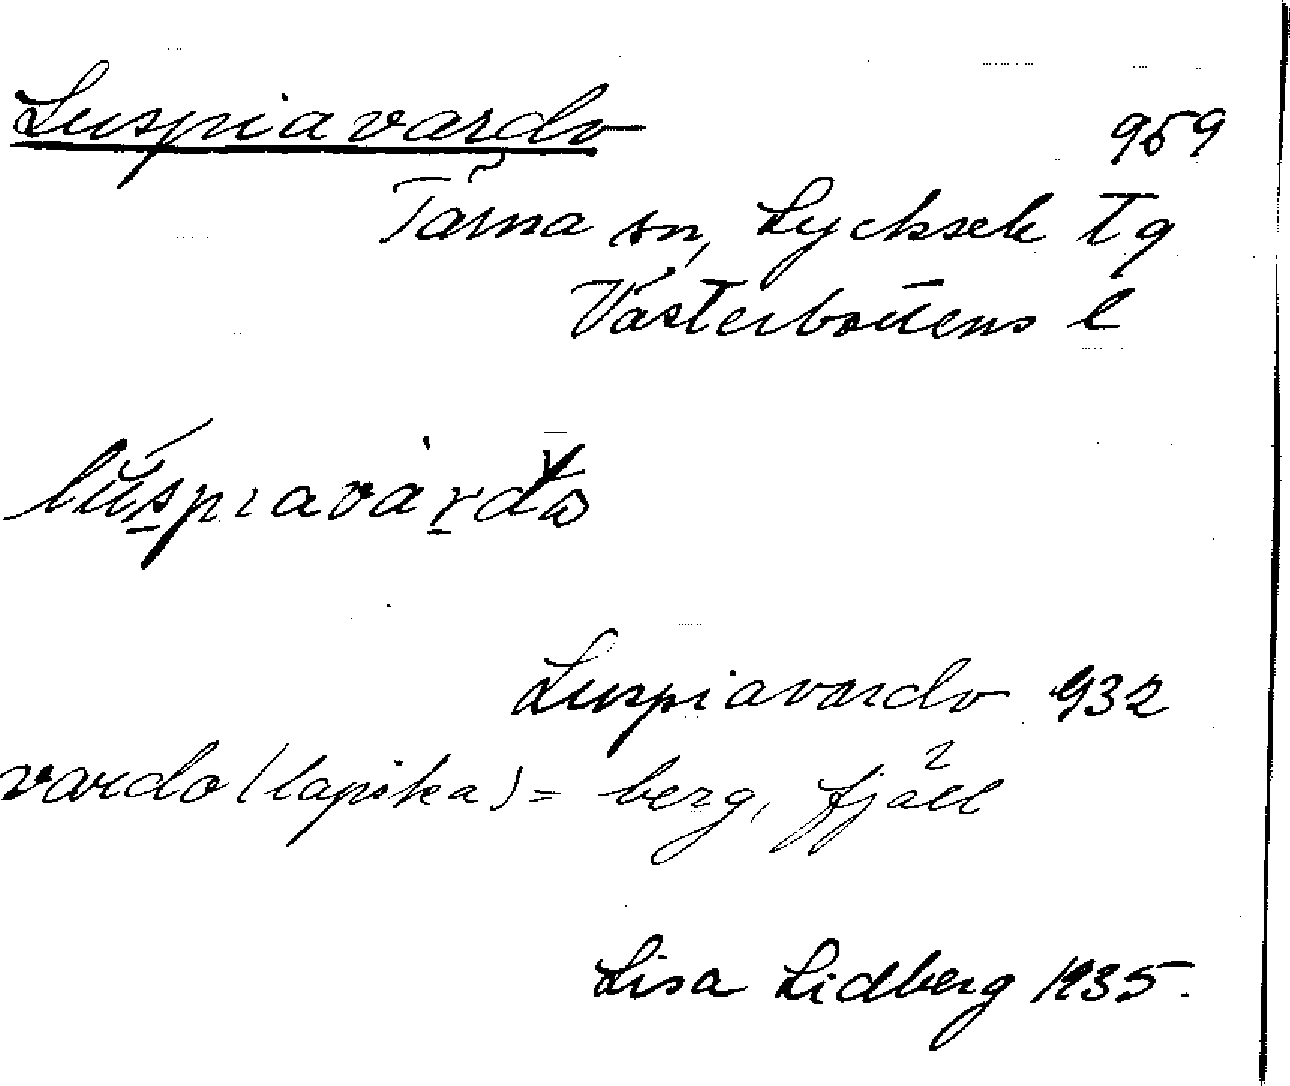 Luspiavardo 959
Tärna sn, Lycksele tg
Västerbottens l
Luspiavardo 932
vardo (lapska) = berg, fjäll
Lisa Lidberg 1935.